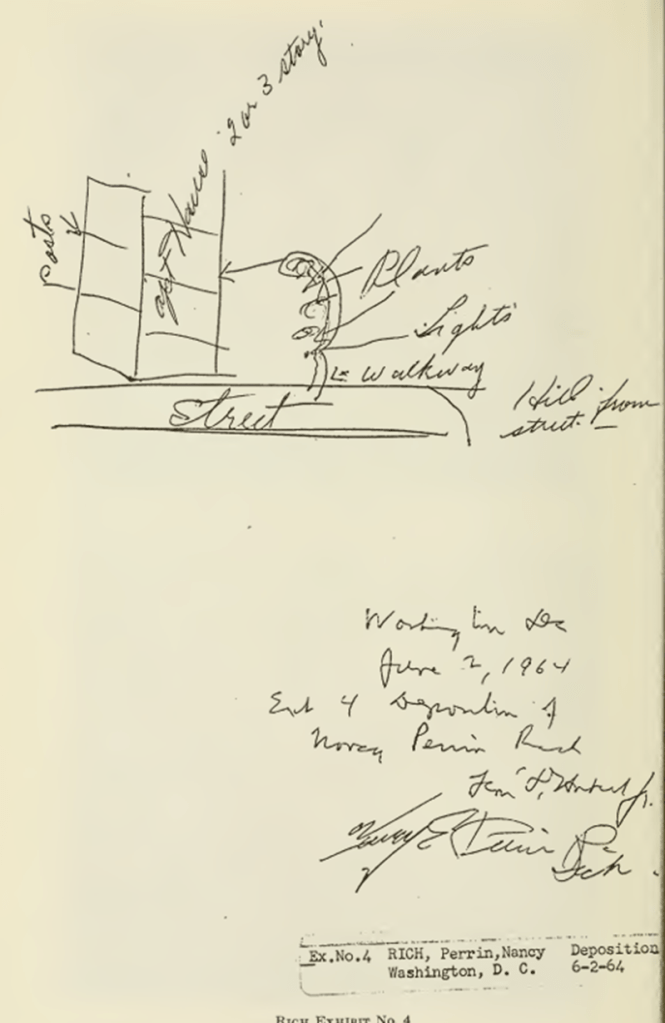 2 or 3 story.
House
Posts
Plants
Lights
Walkway
Street
Hill from
street.
Washington DC
June 2, 1964
Exh 4 Deposition of
Nancy Perrin Rich
Nancy E Perrin Rich
Ex.No.4 RICH, Perrin,Nancy Deposition
Washington, D. C. 6-2-64
RICH EXHIBIT No. 4